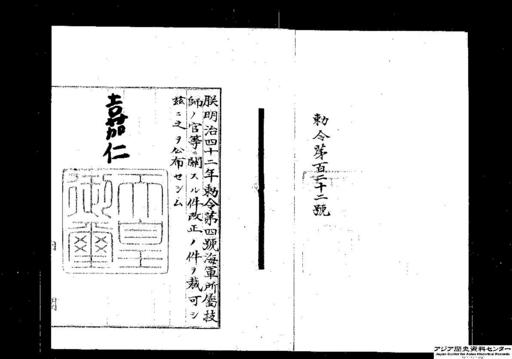 勅令第百二十二號
朕明治四十二年勅令第四號海軍所屬技
師ノ官等ニ關スル件改正ノ件ヲ裁可シ
玆ニ之ヲ公布セシム
嘉仁
天皇
御璽
アジア歴史資料センター
Japan Center for Asian Historical Records